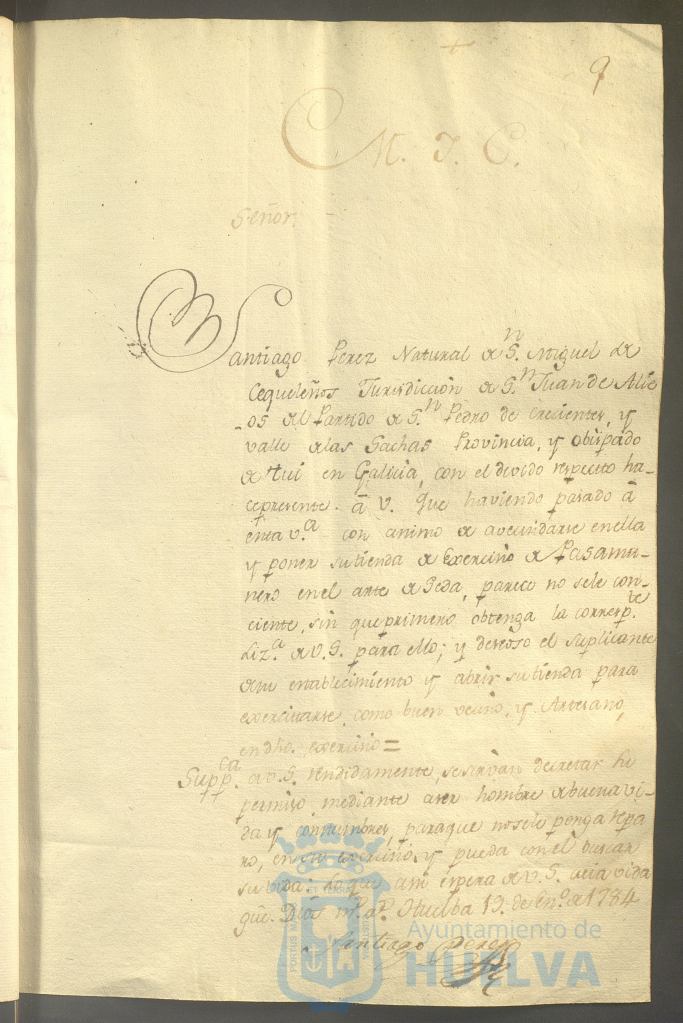 9
M. I. C.
Señor.
Santiago Perez Natural de S.n Miguel de
Cequeleños Jurisdiccion de S.n Juan de Albe
-os del Partido de S.n Pedro de Crecientes, y
valle de las Hachas Provincia, y obispado
de Tui en Galicia, con el devido respecto ha-
ce presente. â V. que haviendo pasado â
esta v.a con animo de avecindarse en ella
y poner su tienda de Exercicio de Pasama-
nero en el arte de Seda, parece no se le con-
ciente, sin que primero obtenga la corresp.te
Liz.a de V.S. para ello; y deseoso el Suplicante
de su establecimiento y abrir su tienda para
exercitarse, como buen vecino, y Artesano,
en dho. exercicio =
Supp.ca a V.S. rendidamente, se sirvan decretar su
permiso mediante a ser hombre de buena vi-
da y constumbres, para que no se le ponga repa
ro, en su exercicio y pueda con el buscar
su vida: Lo que asi espera de V.S. cuia vida
gûe. Dios m.s a.s Huelba 19. de En.o de 1784
Santiago Perez
Ayuntamiento de
HUELVA